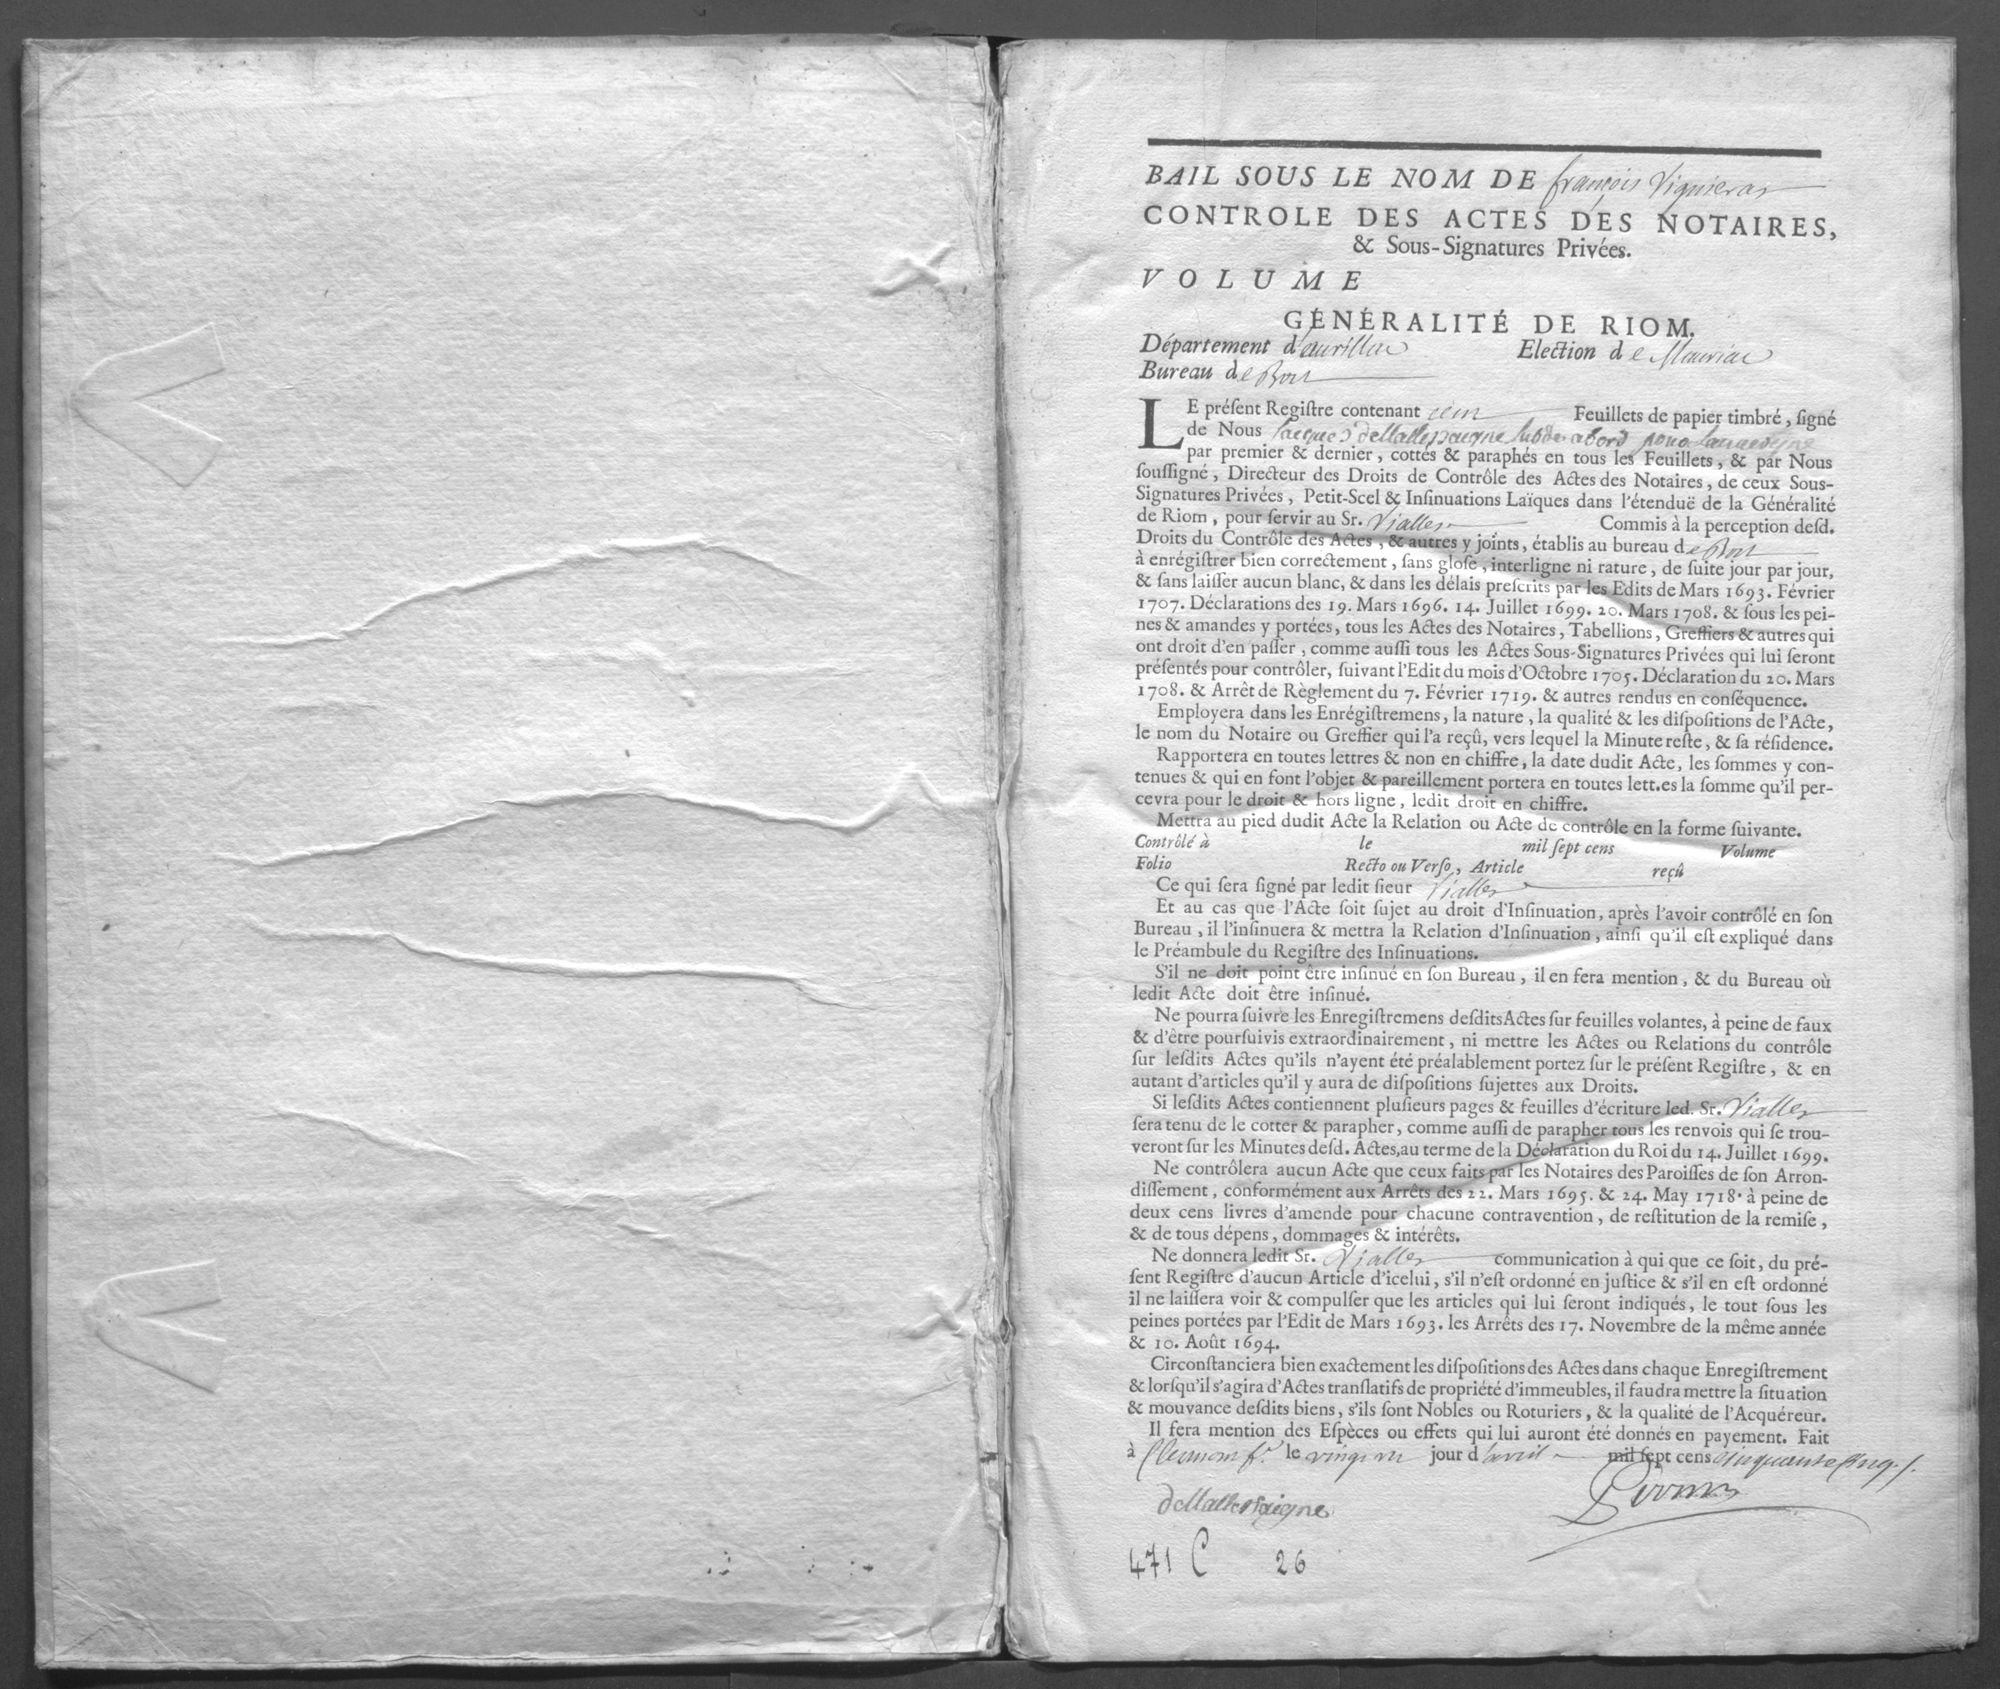 BAIL SOUS LE NOM DE françois Vignieras
CONTROLE DES ACTES DES NOTAIRES,
& Sous-Signatures Privées.
VOLUME
GÉNÉRALITÉ DE RIOM.
Département d'aurillac Election de Mauriac
Bureau de Bort
LE préſent Regiſtre contenant cent Feuillets de papier timbré, ſigné
de Nous Jacques deMallessaigne
par premier & dernier, cottés & paraphés en tous les Feuillets, & par Nous
ſouſſigné, Directeur des Droits de Contrôle des Actes des Notaires, de ceux Sous-
Signatures Privées, Petit-Scel & Inſinuations Laïques dans l'étenduë de la Généralité
de Riom, pour ſervir au Sr. Vialles Commis à la perception deſd.
Droits du Contrôle des Actes, & autres y joints, établis au bureau de Bort
à enrégiſtrer bien correctement, ſans gloſe, interligne ni rature, de ſuite jour par jour,
& ſans laiſſer aucun blanc, & dans les délais preſcrits par les Edits de Mars 1693. Février
1707. Déclarations des 19. Mars 1696. 14. Juillet 1699. 20. Mars 1708. & ſous les pei-
nes & amandes y portées, tous les Actes des Notaires, Tabellions, Greffiers & autres qui
ont droit d'en paſſer, comme auſſi tous les Actes Sous-Signatures Privées qui lui ſeront
préſentés pour contrôler, ſuivant l'Edit du mois d'Octobre 1705. Déclaration du 20. Mars
1708. & Arrêt de Règlement du 7. Février 1719. & autres rendus en conſéquence.
Employera dans les Enrégiſtremens, la nature, la qualité & les diſpoſitions de l'Acte,
le nom du Notaire ou Greffier qui l'a reçû, vers lequel la Minute reſte, & ſa réſidence.
Rapportera en toutes lettres & non en chiffre, la date dudit Acte, les ſommes y con-
tenues & qui en font l'objet & pareillement portera en toutes lett.es la ſomme qu'il per-
cevra pour le droit & hors ligne, ledit droit en chiffre.
Mettra au pied dudit Acte la Relation ou Acte de contrôle en la forme ſuivante.
Contrôlé à le mil ſept cens Volume
Folio Recto ou Verſo, Article reçû
Ce qui ſera ſigné par ledit ſieur Vialles
Et au cas que l'Acte ſoit ſujet au droit d'Inſinuation, après l'avoir contrôlé en ſon
Bureau, il l'inſinuera & mettra la Relation d'Inſinuation, ainſi qu'il eſt expliqué dans
le Préambule du Regiſtre des Inſinuations.
S'il ne doit point être inſinué en ſon Bureau, il en fera mention, & du Bureau où
ledit Acte doit être inſinué.
Ne pourra ſuivre les Enregiſtremens deſdits Actes ſur feuilles volantes, à peine de faux
& d'être pourſuivis extraordinairement, ni mettre les Actes ou Relations du contrôle
ſur leſdits Actes qu'ils n'ayent été préalablement portez ſur le préſent Regiſtre, & en
autant d'articles qu'il y aura de diſpoſitions ſujettes aux Droits.
Si leſdits Actes contiennent pluſieurs pages & feuilles d'écriture led. Sr. Vialles
ſera tenu de le cotter & parapher, comme auſſi de parapher tous les renvois qui ſe trou-
veront ſur les Minutes deſd. Actes, au terme de la Déclaration du Roi du 14. Juillet 1699.
Ne contrôlera aucun Acte que ceux faits par les Notaires des Paroiſſes de ſon Arron-
diſſement, conformément aux Arrêts des 22. Mars 1695. & 24. May 1718. à peine de
deux cens livres d'amende pour chacune contravention, de reſtitution de la remiſe,
& de tous dépens, dommages & intérêts.
Ne donnera ledit Sr. Vialles communication à qui que ce ſoit, du pré-
ſent Regiſtre d'aucun Article d'icelui, s'il n'eſt ordonné en juſtice & s'il en eſt ordonné
il ne laiſſera voir & compulſer que les articles qui lui ſeront indiqués, le tout ſous les
peines portées par l'Edit de Mars 1693. les Arrêts des 17. Novembre de la même année
& 10. Août 1694.
Circonſtanciera bien exactement les diſpoſitions des Actes dans chaque Enregiſtrement
& lorſqu'il s'agira d'Actes tranſlatifs de propriété d'immeubles, il faudra mettre la ſituation
& mouvance deſdits biens, s'ils ſont Nobles ou Roturiers, & la qualité de l'Acquéreur.
Il fera mention des Eſpèces ou effets qui lui auront été donnés en payement. Fait
à Clermont fd. le vingt un jour d'avril mil ſept cens cinquante cinq./.
deMallessaigne
471 C 26